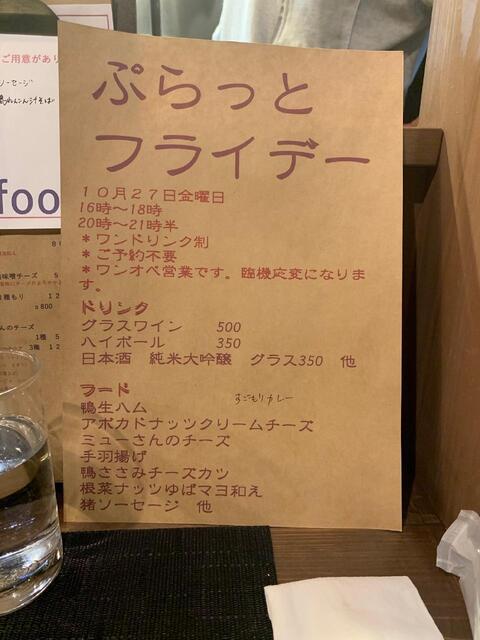 ぷらっと
フライデー
10月27日金曜日
16時〜18時
20時〜21時半
*ワンドリンク制
*ご予約不要
*ワンオペ営業です。臨機応変になりま
す。
ドリンク
グラスワイン 500
ハイボール 350
日本酒 純米大吟醸 グラス350 他
フード
すごもりカレー
鴨生ハム
アボカドナッツクリームチーズ
ミューさんのチーズ
手羽揚げ
鴨ささみチーズカツ
根菜ナッツゆばマヨ和え
猪ソーセージ 他
ご用意があり
ソーセージ
foo
味噌チーズ 5
種もり 12
s800
んのチーズ
1種 5
3種 12